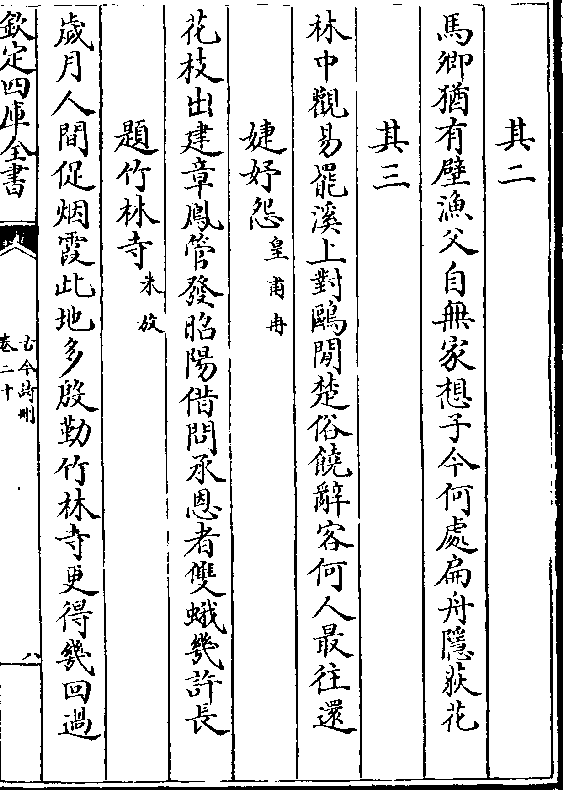 其二
馬卿猶有壁漁父自無家想子今何處扁舟隱荻花
其三
林中觀易罷溪上對鷗閒楚俗饒辭客何人最往還
婕妤怨皇甫冉
花枝出建章鳳管發昭陽借問承恩者雙蛾幾許長
題竹林寺朱放
歲月人間促烟霞此地多殷勤竹林寺更得幾回過
欽定四庫全書
古今詩刪
卷二十
八